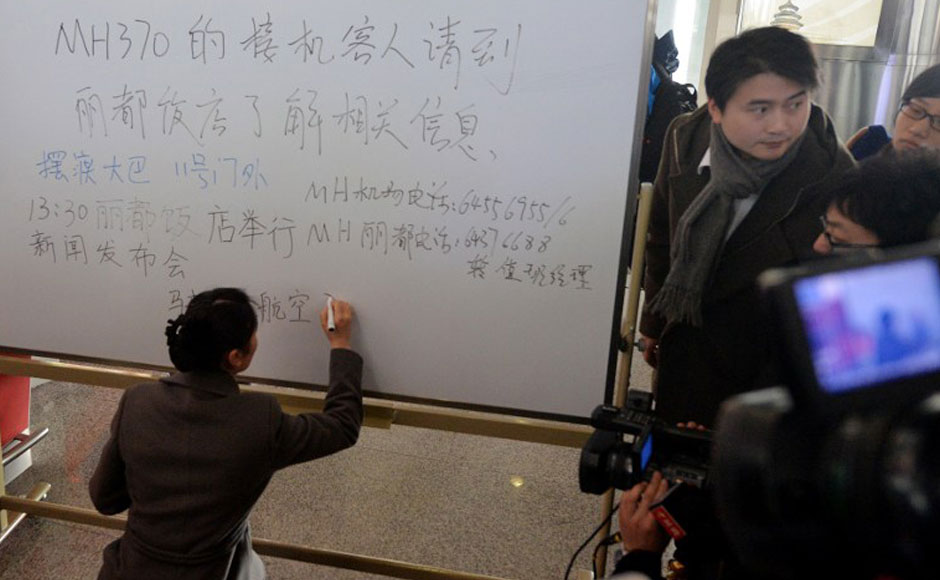 MH370的接机客人请到
丽都饭店了解相关信息、
摆渡大巴 11号门外
MH机场电话:64556955/6
13:30丽都饭店举行
MH丽都电话:64376688
转值班经理
新闻发布会
马 航空